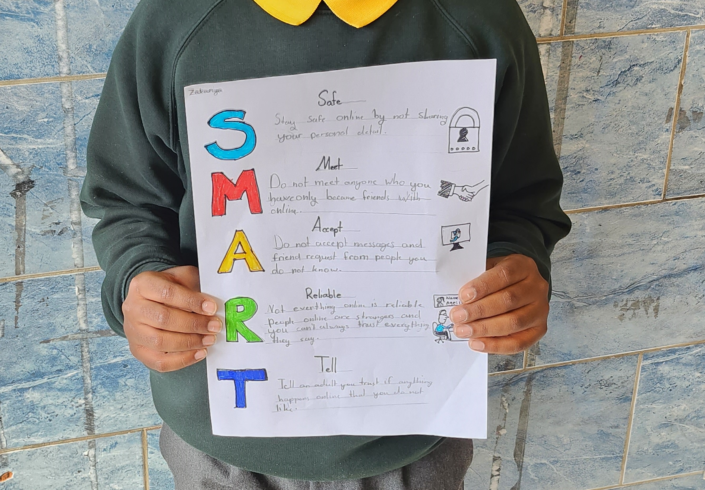 Zakariya
Safe
Stay safe online by not sharing
your personal detail.
S
Meet
Do not meet anyone who you
have only become friends with
online.
M
Accept
Do not accept messages and
friend request from people you
do not know.
A
Reliable
Not everything online is reliable
people online are strangers and
you can't always trust everything
they say.
R
Tell
Tell an adult you trust if anything
happens online that you do not
like.
T